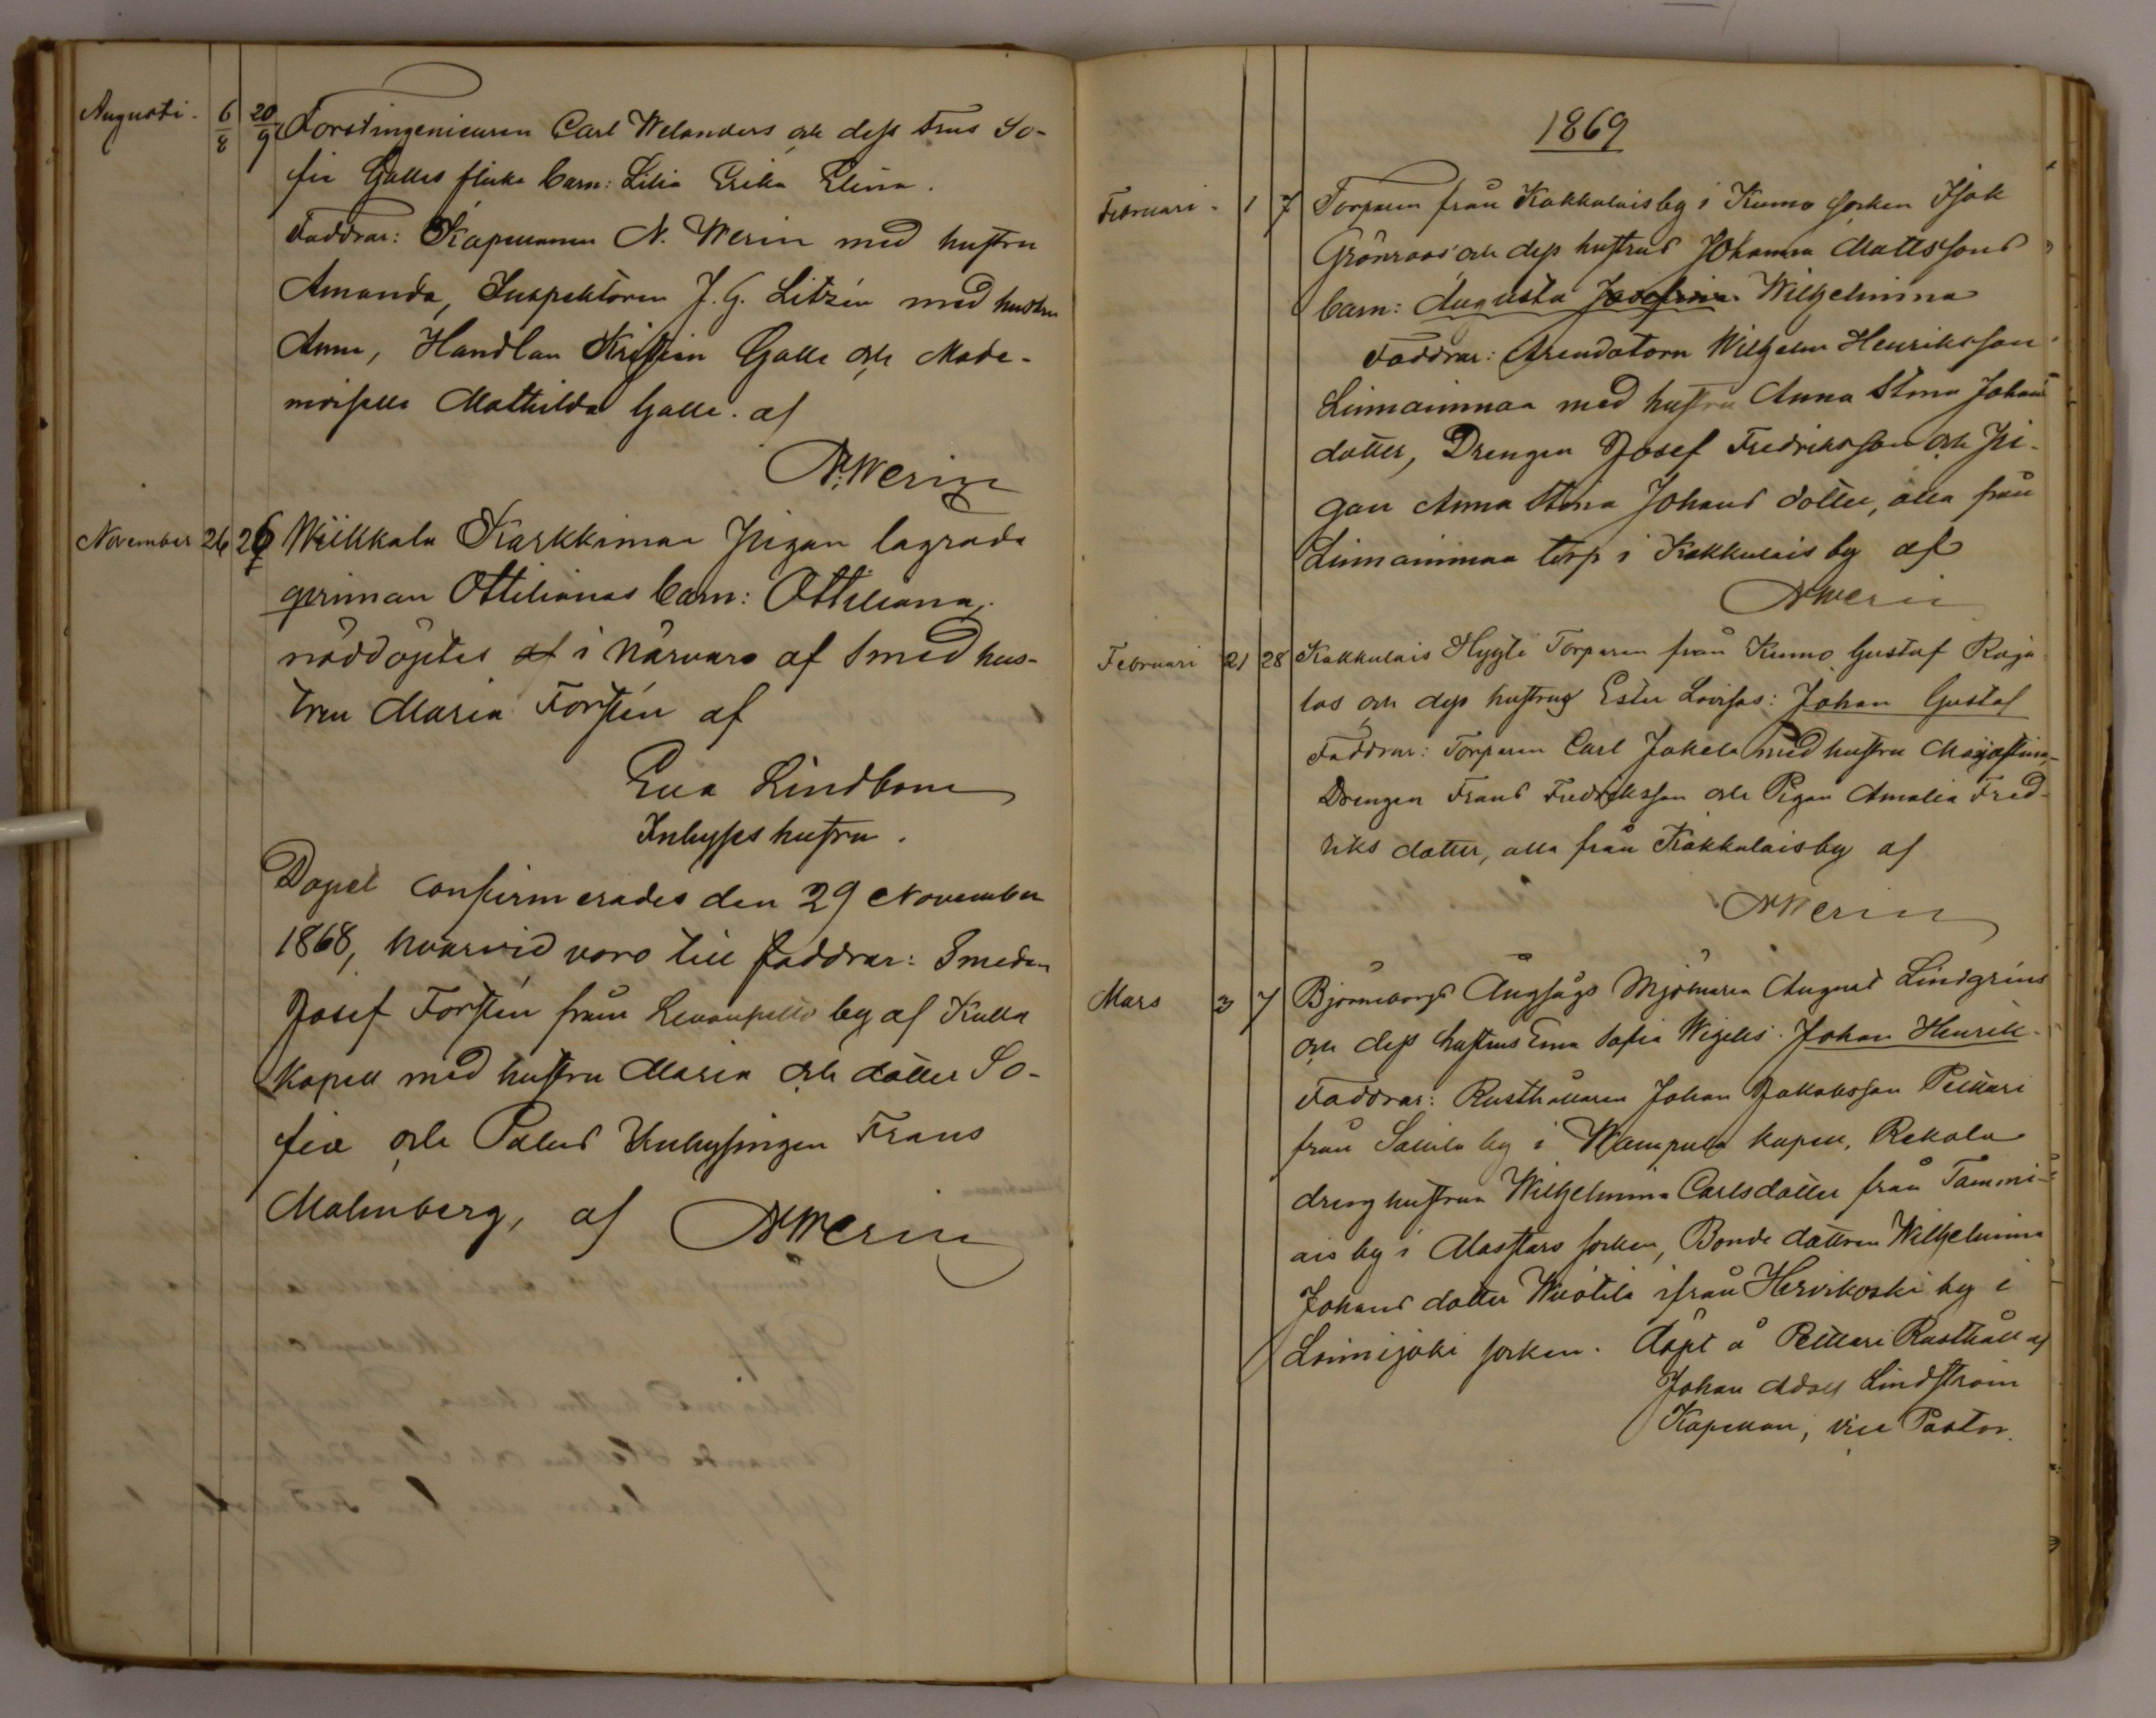 Augusti. 6/8 20/9 Forstingenieuren Carl Welanders och dess Frus So-
fie Galles flicke barn: Lilia Erika Elina.
Faddrar: Kapellanen N. Werin med hustru
Amanda, Inspektoren J. G. Litzén med hustru
Anna, Handlan Kristian Galle och Made-
moiselle Mathilda Galle. af
N. Werin
November 26 26 Wiikkala Karkkimaa Pigan lagrada
qvinnan Ottilianas barn: Ottiliana,
nöddöptes i närvaro af Smed hus-
trun Maria Forstén af
Eva Lindbom
Inhyses hustru.
Dopet confirmerades den 29 November
1868, hvarvid voro till faddrar: Smeden
Josef Forstén från Levanpelto by af Kulla
Kapell med hustru Maria och dotter So-
fia och Palus Inhysingen Frans
Malmberg, af N Werin
1869
Februari. 1 7 Torparen från Kakkulais by i Kumo socken Isak
Grönroos och dess hustrus Johanna Mattssons
barn: Augusta Josefina Wilhelmina
Faddrar: Arendatorn Wilhelm Henriksson
Linnainmaa med hustru Anna Stina Johans
dotter, Drengen Josef Fredriksson och Pi-
gan Anna Stina Johans dotter, alla från
Linnainmaa torp i Kakkulais by af
N Werin
Februari 21 28 Kakkulais Hygli Torparen från Kumo Gustaf Raja-
las och dess hustrus Ester Lovisas: Johan Gustaf
Faddrar: Torparen Carl Jakola med hustru Majastina,
Drengen Frans Fredriksson och Pigan Amalia Fred-
riks dotter, alla från Kakkulais by af
N Werin
Mars 3 7 Björneborgs Ångsågs Mjölnaren August Lindgréns
och dess hustrus Eva Sofia Wigelis: Johan Henrik.
Faddrar: Rusthållaren Johan Jakobsson Peltari
från Sallila by i Wampula kapell, Rekola
dreng hustrun Wilhelmina Carlsdotter från Tammi-
ais by i Alastaro socken, Bonde dottren Wilhelmina
Johans dotter Wuotila ifrån Hirvikoski by i
Loimijoki socken. Döpt å Peltari Rusthåll af
Johan Adolf Lindström
Kapellan, vice Pastor.